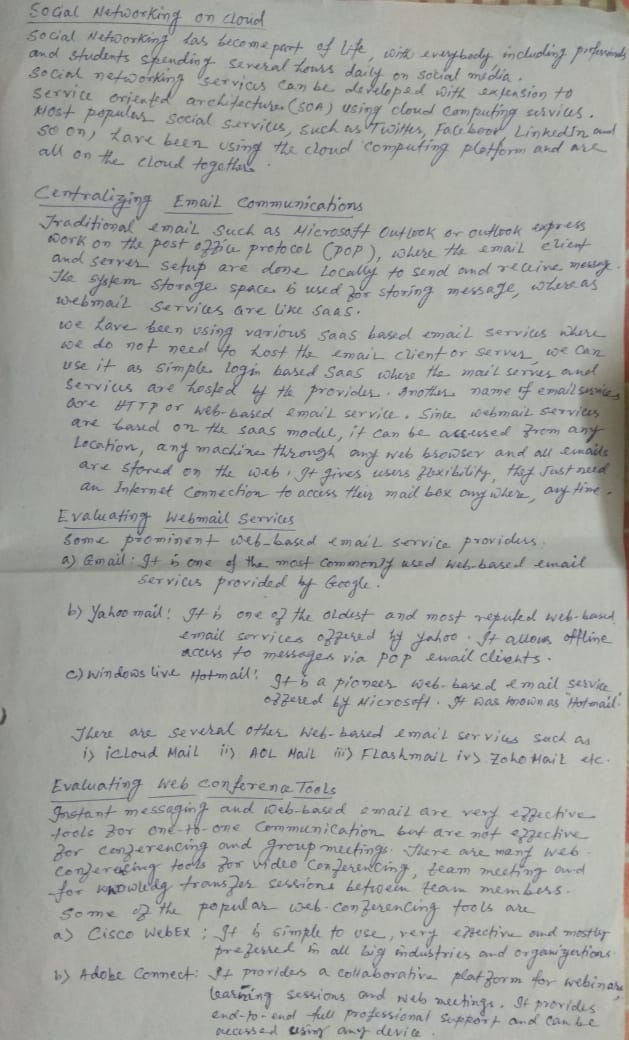 Social Networking on cloud
Social Networking has become part of life, with everybody including professionals
and students spending several hours daily on social media.
Social networking services can be developed with expension to
service oriented architectures (SOA) using cloud computing services.
Most popular social services, such as Twitter, Facebook, LinkedIn and
so on, have been using the cloud computing platform and are
all on the cloud together.
Centralizing Email Communications
Traditional email such as Microsoft Outlook or outlook express
work on the post office protocol (POP), where the email client
and server setup are done locally to send and receive message.
The system storage space is used for storing message, whereas
webmail services are like SaaS.
we have been using various SaaS based email services where
we do not need to host the email client or server, we can
use it as simple login based SaaS where the mail server and
services are hosted by the provider. Another name of email services
are HTTP or web-based email service. Since webmail services
are based on the SaaS model, it can be assessed from any
Location, any machine through any web browser and all emails
are stored on the web. It gives users flexibility, they Just need
an Internet connection to access their mail box any where, any time.
Evaluating Webmail Services
Some prominent web-based email service providers.
a) Gmail: It is one of the most commonly used web-based email
services provided by Google.
b) Yahoo mail: It is one of the oldest and most reputed web-based
email services offered by yahoo. It allows offline
access to messages via POP email clients.
c) Windows Live Hotmail: It is a pioneer web-based email service
offered by Microsoft. It was known as "Hotmail"
There are several other Web-based email services such as
i) iCloud Mail ii) AOL Mail iii) Flashmail iv) Zoho Mail etc.
Evaluating Web Conference Tools
Instant messaging and Web-based email are very effective
tools for one-to-one communication but are not effective
for conferencing and group meetings. There are many web
conferencing tools for video conferencing, team meeting and
for knowledg transfer sessions between team members.
Some of the popular web-conferencing tools are
a) Cisco WebEx: It is simple to use, very effective and mostly
preferred in all big industries and organizations
b) Adobe Connect: It provides a collaborative platform for webinars
learning sessions and web meetings. It provides
end-to-end full professional support and can be
accessed using any device.